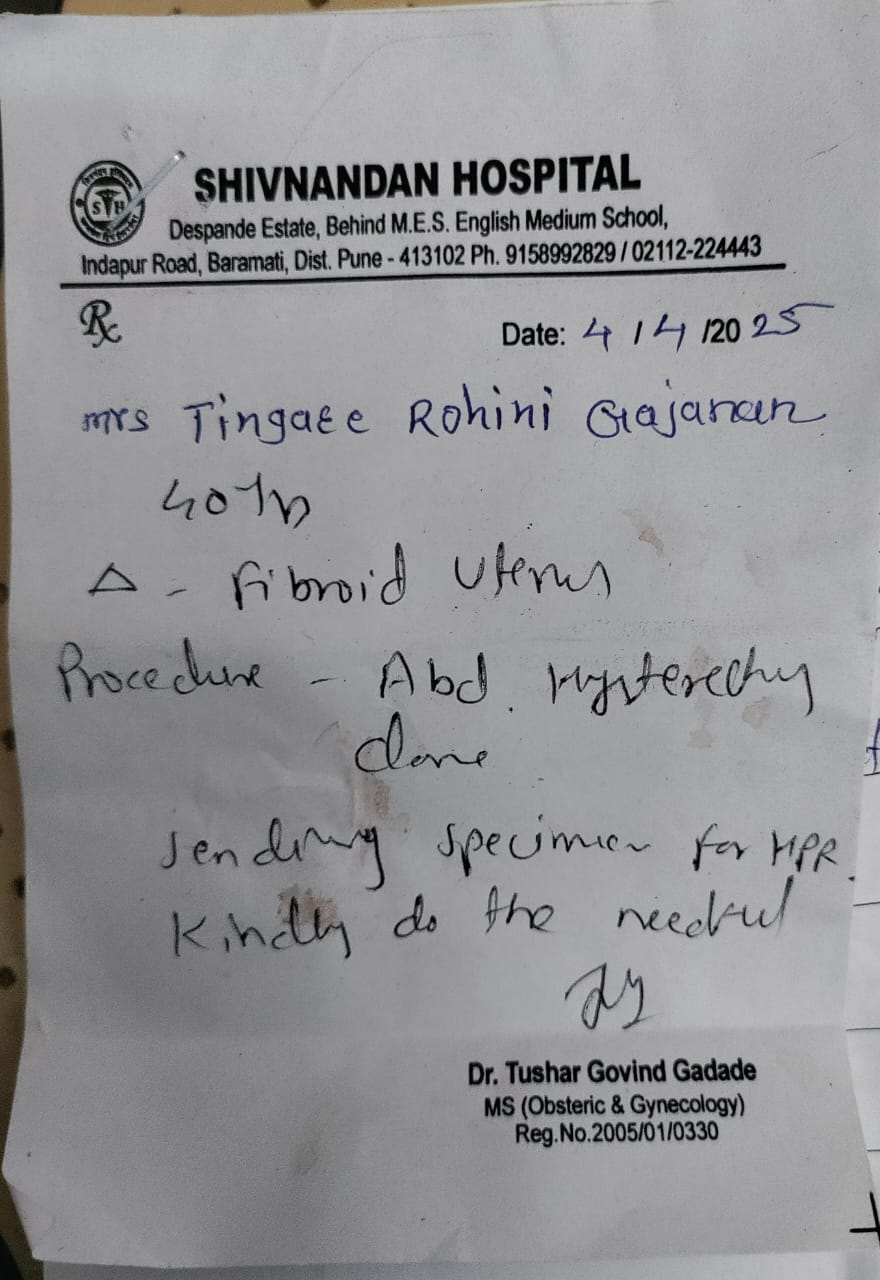 SHIVNANDAN HOSPITAL
Despande Estate, Behind M.E.S. English Medium School,
Indapur Road, Baramati, Dist. Pune - 413102 Ph. 9158992829 / 02112-224443
Rx
Date: 4 / 4 /20 25
mrs Tingate Rohini Gajanan
△ - Fibroid Uterus
Procedure - Abd. Hysterectmy
done
Sending specimen for HPR.
Kindly do the needful
Dr. Tushar Govind Gadade
MS (Obsteric & Gynecology)
Reg.No.2005/01/0330